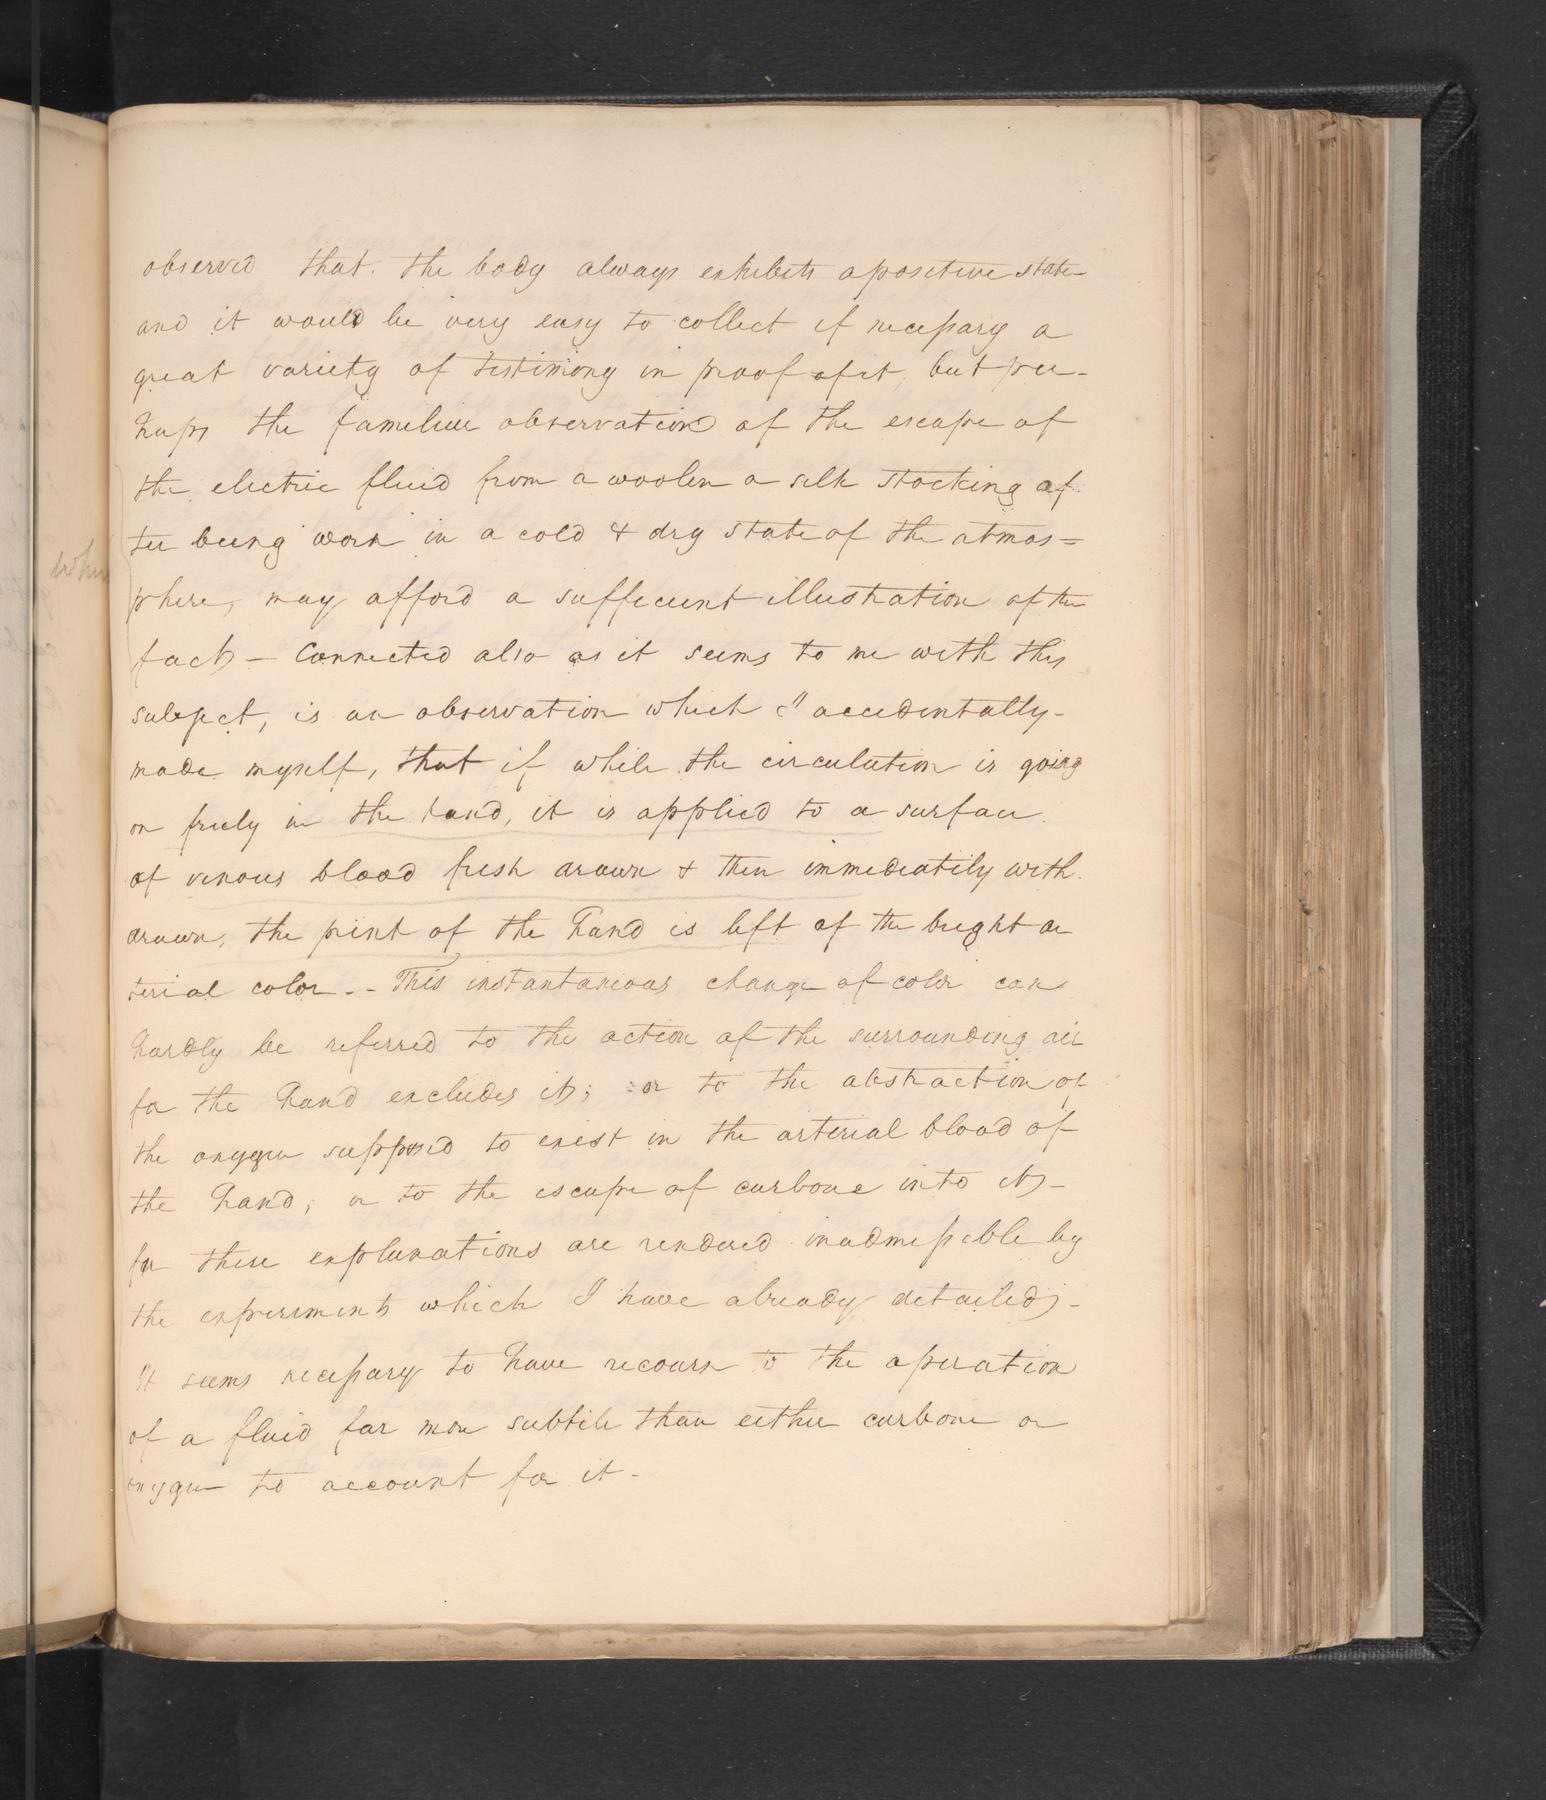 observed that. the body always exhibits a positive state
and it would be very easy to collect if necessary a
great variety of testimony in proof of it, but per-
haps the familiar observation of the escape of
the electric fluid from a woolen or silk stocking af
ter being worn in a cold & dry state of the atmos=
phere, may afford a sufficient illustration of the
fact - Connected also as it seems to me with this
subject, is an observation which I accidentally-
made myself, that if while the circulation is going
on freely in the hand, it is applied to a surface
of venous blood fresh drawn & then immediately with.
drawn, the print of the hand is left of the bright ar
terial color -- This instantaneous change of color can
hardly be referred to the action of the surrounding air
for the hand excludes it; or to the abstraction of
the oxygen supposed to exist in the arterial blood of
the hand, or to the escape of carbone into it -
for these explanations are rendered inadmissible by
the experiments which I have already detailed -
It seems necessary to have recourse to the operation
of a fluid far more subtile than either carbone or
oxygen to account for it -